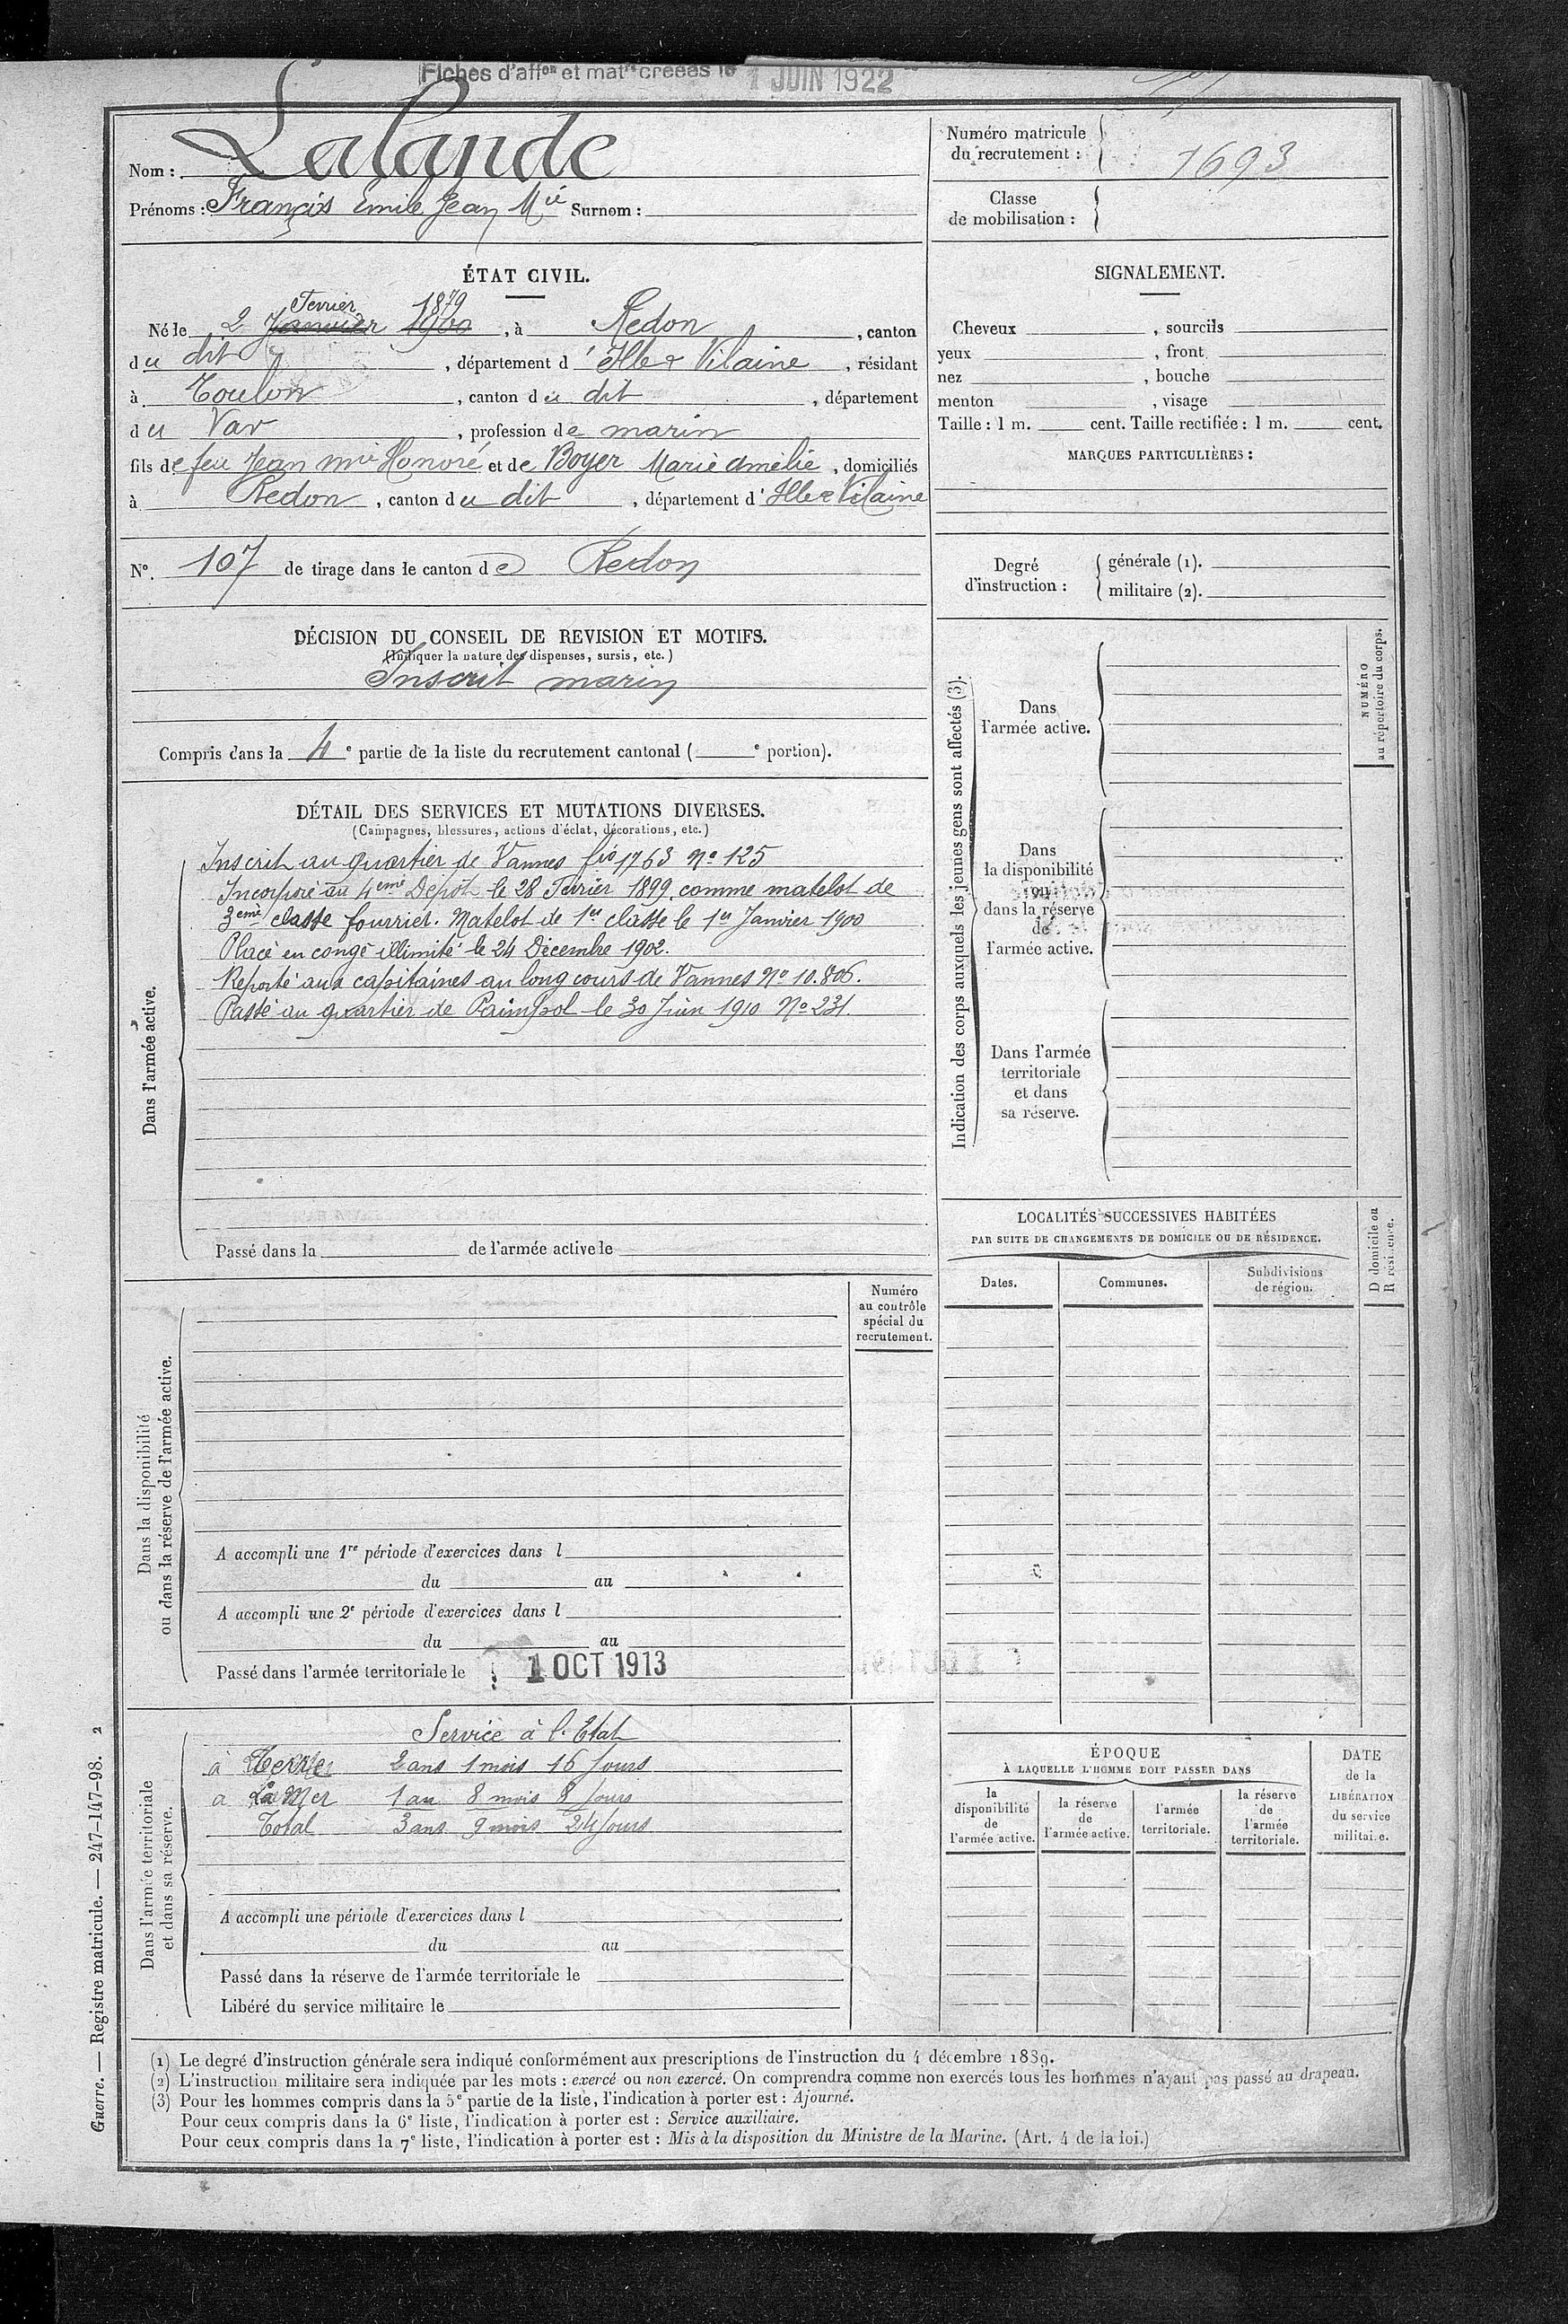 Fiches d'affon et matr créées le 1 JUIN 1922
Nom : Lalande
Prénoms : François Emile Jean Mie Surnom :
Numéro matricule
du recrutement : 1693
Classe
de mobilisation :
ÉTAT CIVIL.
Fevrier 1879
Né le 2 Janvier 1900, à Redon, canton
du dit, département d'Ille & Vilaine, résidant
à Toulon, canton du dit, département
du Var, profession de marin
fils de feu Jean Mie Honoré et de Boyer Marie Amélie, domiciliés
à Redon, canton du dit, département d'Ille & Vilaine
N°. 107 de tirage dans le canton de Redon
DÉCISION DU CONSEIL DE REVISION ET MOTIFS.
(Indiquer la nature des dispenses, sursis, etc.)
Inscrit marin
Compris dans la 4e partie de la liste du recrutement cantonal ( e portion).
DÉTAIL DES SERVICES ET MUTATIONS DIVERSES.
(Campagnes, blessures, actions d'éclat, décorations, etc.)
Dans l'armée active.
Inscrit au quartier de Vannes fio 1763 No 125
Incorporé au 4eme Dépôt le 28 Fevrier 1899 comme matelot de
3eme classe fourrier. Matelot de 1er classe le 1er Janvier 1900
Placé en congé illimité le 24 Décembre 1902.
Reporté aux capitaines au long cours de Vannes No 10.806.
Passé au quartier de Paimpol le 30 Juin 1910 No 231.
Passé dans la de l'armée active le
Dans la disponibilité
ou dans la réserve de l'armée active.
Numéro
au contrôle
spécial du
recrutement.
A accompli une 1re période d'exercices dans l
du au
A accompli une 2e période d'exercices dans l
du au
Passé dans l'armée territoriale le 1 OCT 1913
Dans l'armée territoriale
et dans sa réserve.
Service à l'Etat
à Terre 2 ans 1 mois 16 Jours
à La Mer 1 an 8 mois 8 Jours
Total 3 ans 9 mois 24 Jours
A accompli une période d'exercices dans l
du au
Passé dans la réserve de l'armée territoriale le
Libéré du service militaire le
SIGNALEMENT.
Cheveux , sourcils
yeux , front
nez , bouche
menton , visage
Taille : 1 m. cent. Taille rectifiée : 1 m. cent.
MARQUES PARTICULIÈRES :
Degré
d'instruction :
générale (1).
militaire (2).
Indication des corps auxquels les jeunes gens sont affectés (3).
Dans
l'armée active.
Dans
la disponibilité
ou
dans la réserve
de
l'armée active.
Dans l'armée
territoriale
et dans
sa réserve.
NUMÉRO
au répertoire du corps.
LOCALITÉS SUCCESSIVES HABITÉES
PAR SUITE DE CHANGEMENTS DE DOMICILE OU DE RÉSIDENCE.
Dates.
Communes.
Subdivisions
de région.
D domicile ou
R résidence.
ÉPOQUE
À LAQUELLE L'HOMME DOIT PASSER DANS
la
disponibilité
de
l'armée active.
la réserve
de
l'armée active.
l'armée
territoriale.
la réserve
de
l'armée
territoriale.
DATE
de la
LIBÉRATION
du service
militaire.
(1) Le degré d'instruction générale sera indiqué conformément aux prescriptions de l'instruction du 4 décembre 1889.
(2) L'instruction militaire sera indiquée par les mots : exercé ou non exercé. On comprendra comme non exercés tous les hommes n'ayant pas passé au drapeau.
(3) Pour les hommes compris dans la 5e partie de la liste, l'indication à porter est : Ajourné.
Pour ceux compris dans la 6e liste, l'indication à porter est : Service auxiliaire.
Pour ceux compris dans la 7e liste, l'indication à porter est : Mis à la disposition du Ministre de la Marine. (Art. 4 de la loi.)
Guerre. — Registre matricule. — 247-147-98. 2